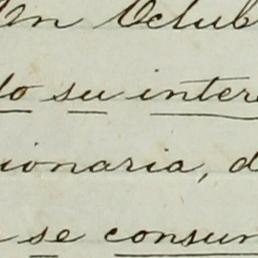 en Octub
do su inter
ionaria, d
se consum